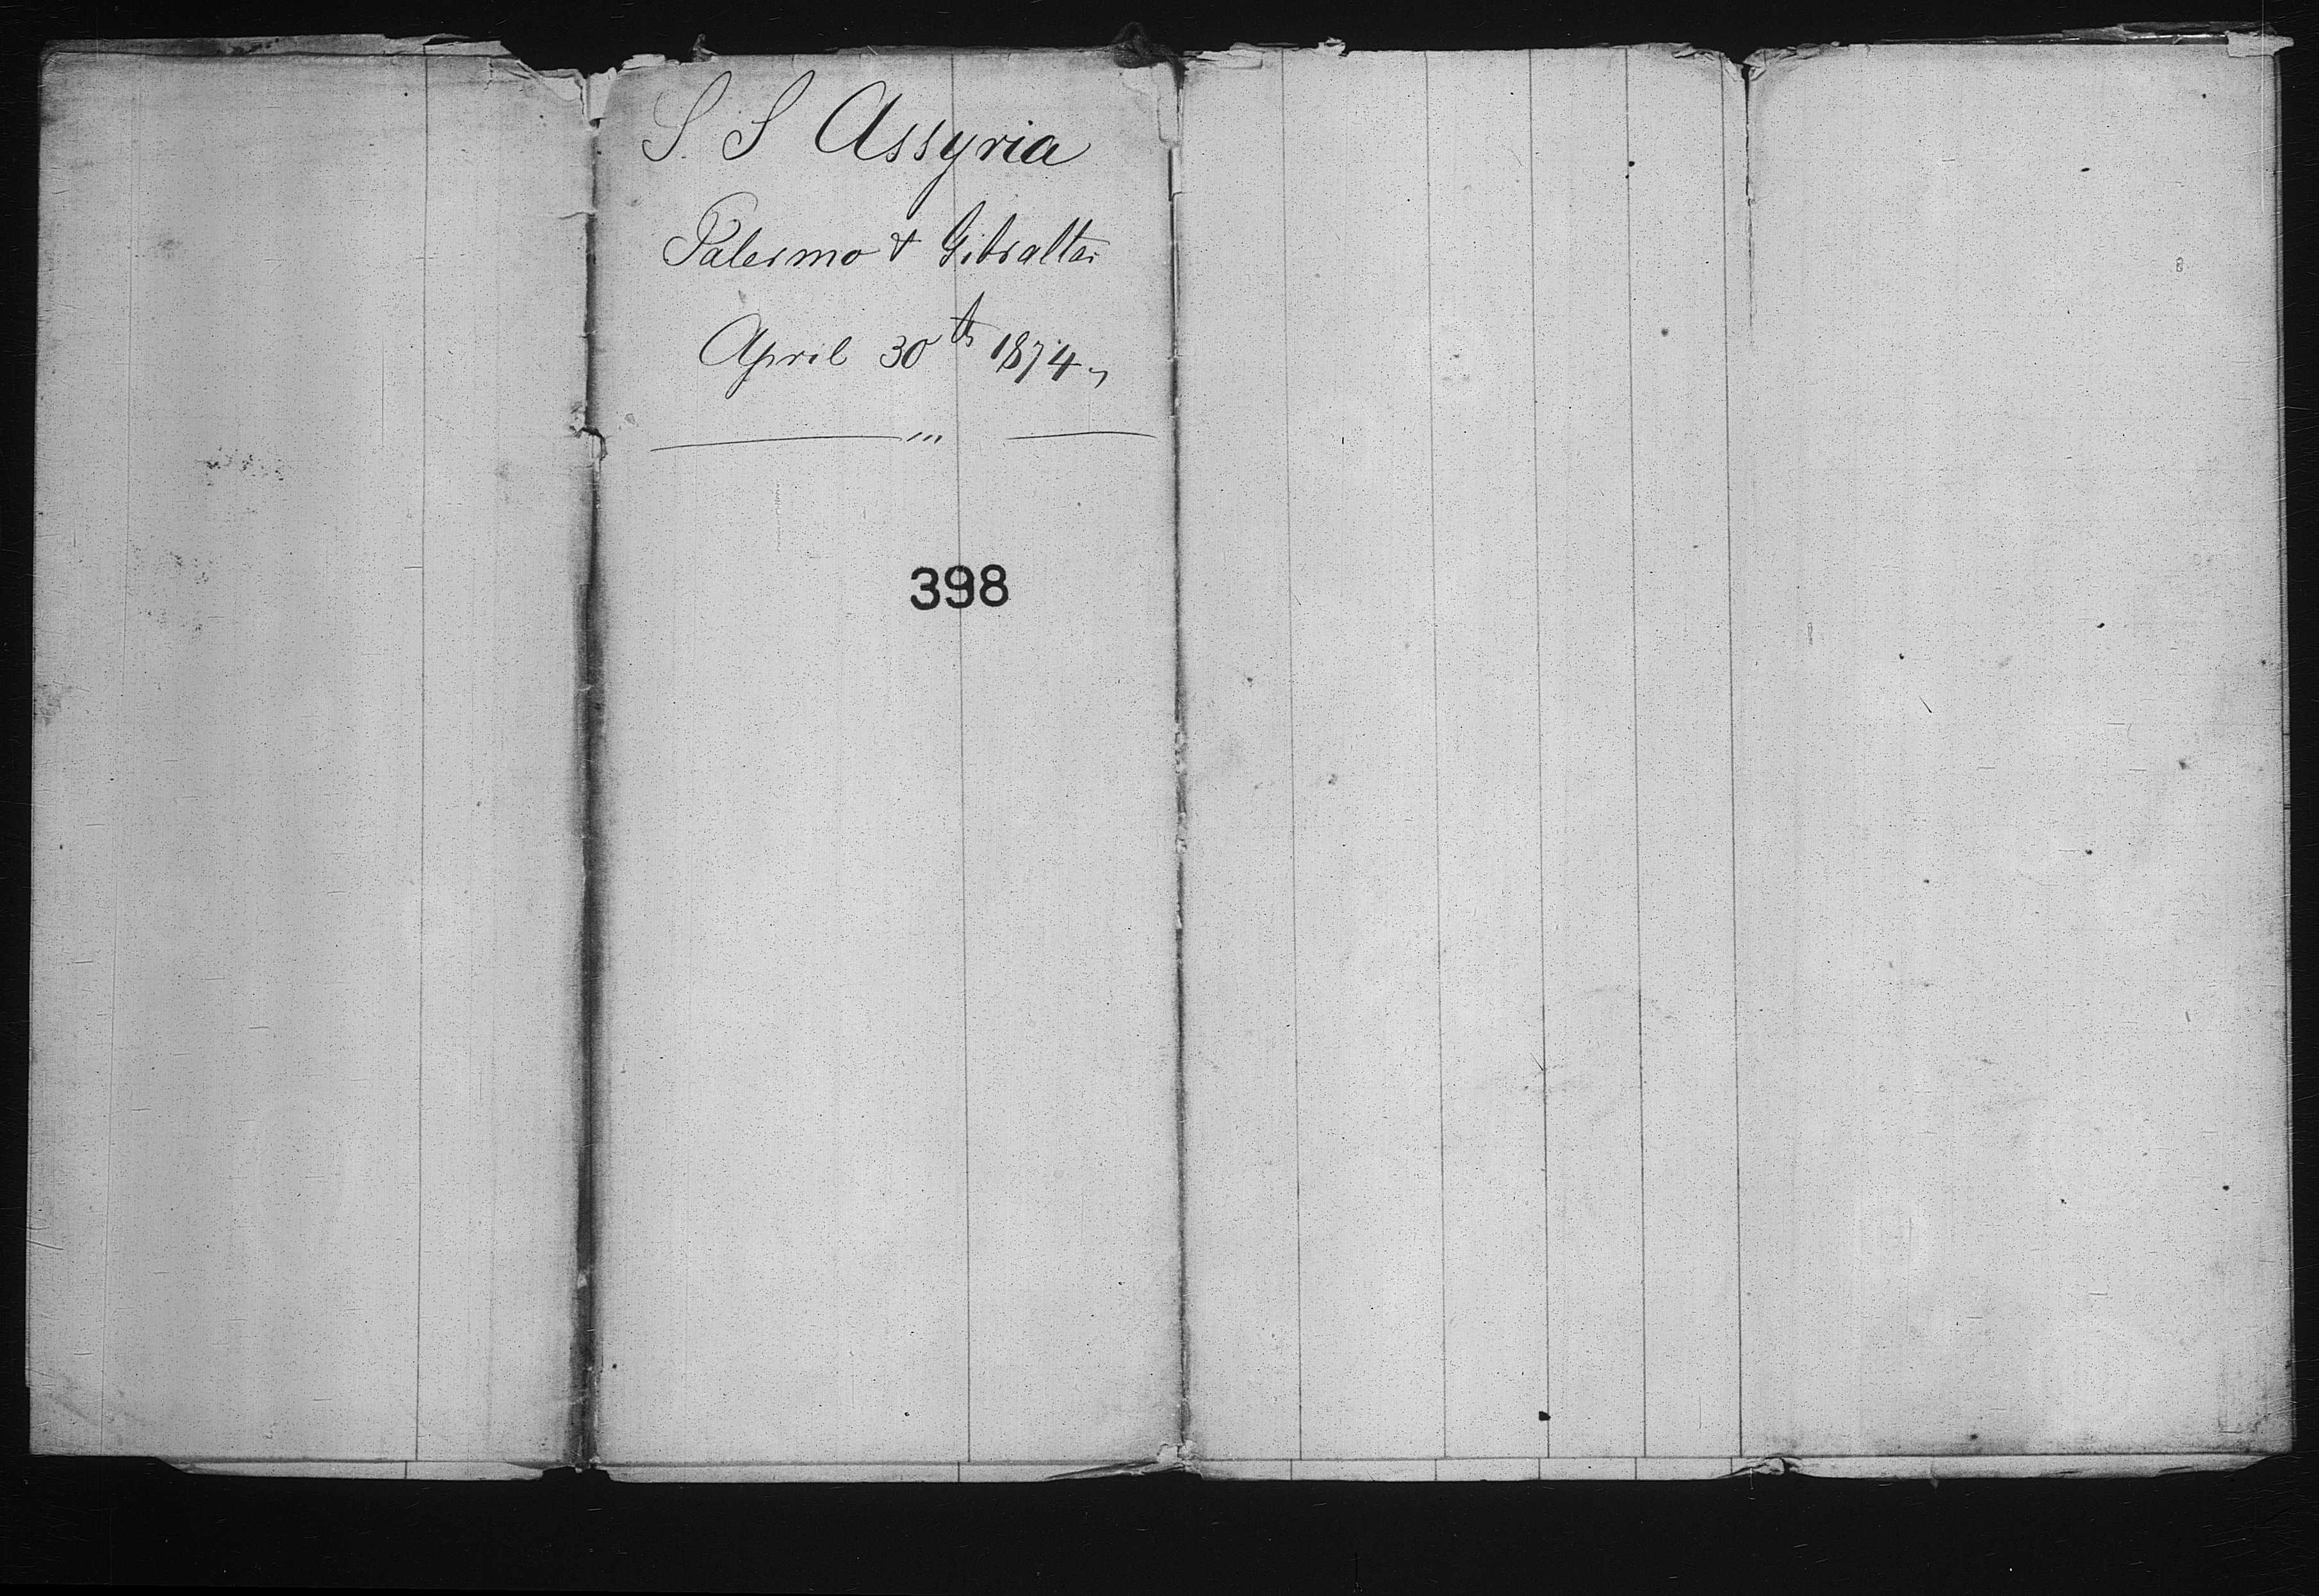 S. S Assyria
Palermo & Gibralter
April 30th 1874
398